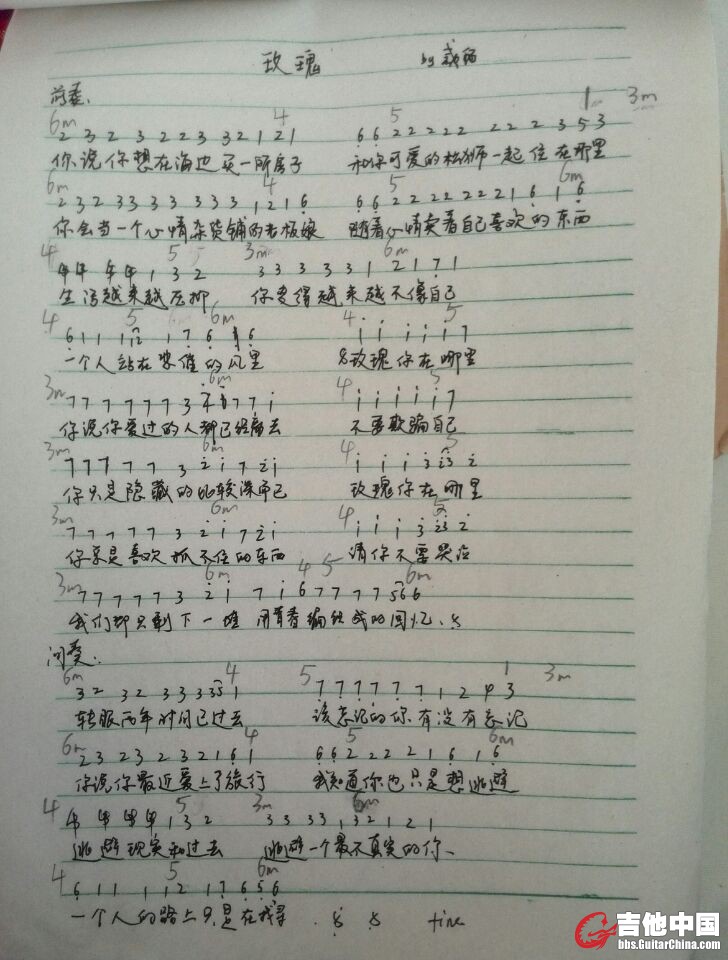 玫瑰
前奏:
6m 4 5 1m 3m
2 3 2 3 2 2 3 3 2 1 2 1 6 6 2 2 2 2 2 2 2 2 3 5 3
你说你想在海边买一所房子 和你可爱的松狮一起住在那里
6m 4 5 6m
2 3 2 3 3 3 3 3 3 3 1 2 1 6 6 6 2 2 2 2 2 2 1 6 1 6
你会当一个心情杂货铺的老板娘 随着心情卖着自己喜欢的东西
4 5 3m 6m
1 3 2 3 3 3 3 3 1 2 1 7 1
生活越来越压抑 你变得越来越不像自己
4 5 6m 4 5
6 1 1 1 12 1 7 6 1 6 i i i i i 7
一个人站在悲催的风里 玫瑰你在哪里
3m 6m 4 5
7 7 7 7 7 7 3 7 7 i i i i i i 7
你说你爱过的人都已经离去 不要欺骗自己
3m 6m 4 5
7 7 7 7 7 3 2 i 7 2i i i i 3 23 2
你只是隐藏的比较深而已 玫瑰你在哪里
3m 6m 4 5
7 7 7 7 7 3 2 i 7 2i i i i 3 23 2
你总是喜欢抓不住的东西 请你不要哭泣
3m 6m 4 5 6m
7 7 7 7 7 3 2 i 7 i 6 7 7 7 7 56 6
我们都只剩下一堆 用青春编织成的回忆
间奏:
6m 4 5 1 3m
3 2 3 2 3 3 3 35 1 7 7 7 7 7 7 1 2 4 3
转眼两年时间已过去 该忘记的你有没有忘记
6m 4 5 6m
2 3 2 3 2 3 2 1 6 1 6 6 2 2 2 2 1 6 1 6
你说你最近爱上了旅行 我知道你也只是想逃避
4 5 3m 6m
1 3 2 3 3 3 3 1 3 2 1 2 1
逃避现实和过去 逃避一个最不真实的你
4 5 6m
6 1 1 1 1 2 1 7 6 5 6
一个人的路上只是在找寻 fine
吉他中国
bbs.GuitarChina.com